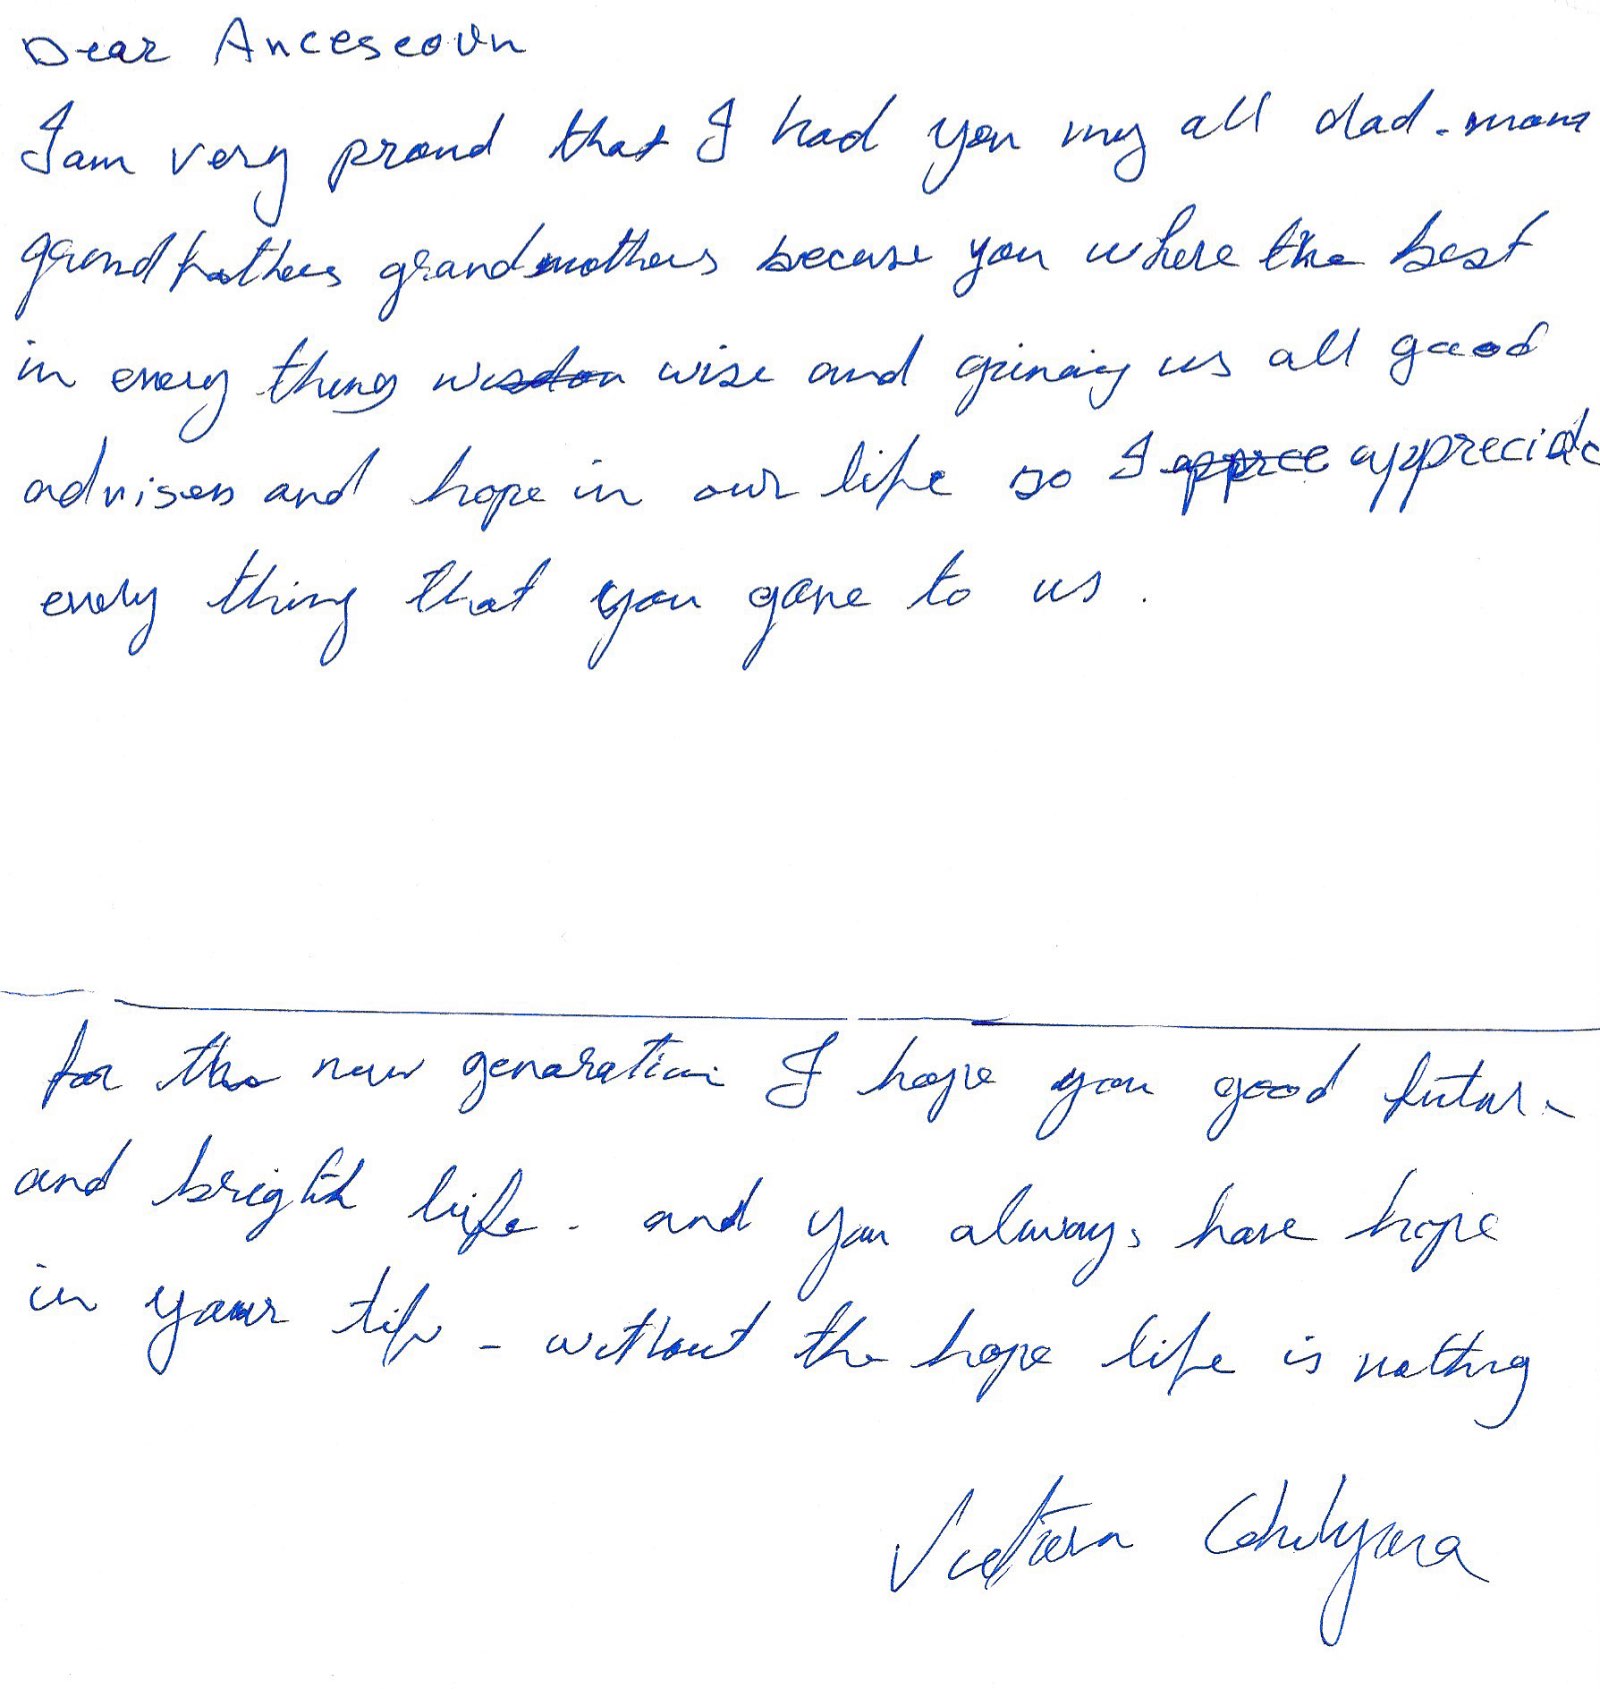 Dear Anceseovn
I am very proud that I had you my all dad-mom
grandfathers grandmothers because you where the best
in every thing wise and giving us all good
advises and hope in our life so I appree appreciate
every thing that you gave to us.
for the new genaration I hope you good future
and bright life. and you always have hope
in your life - without the hope life is nothing